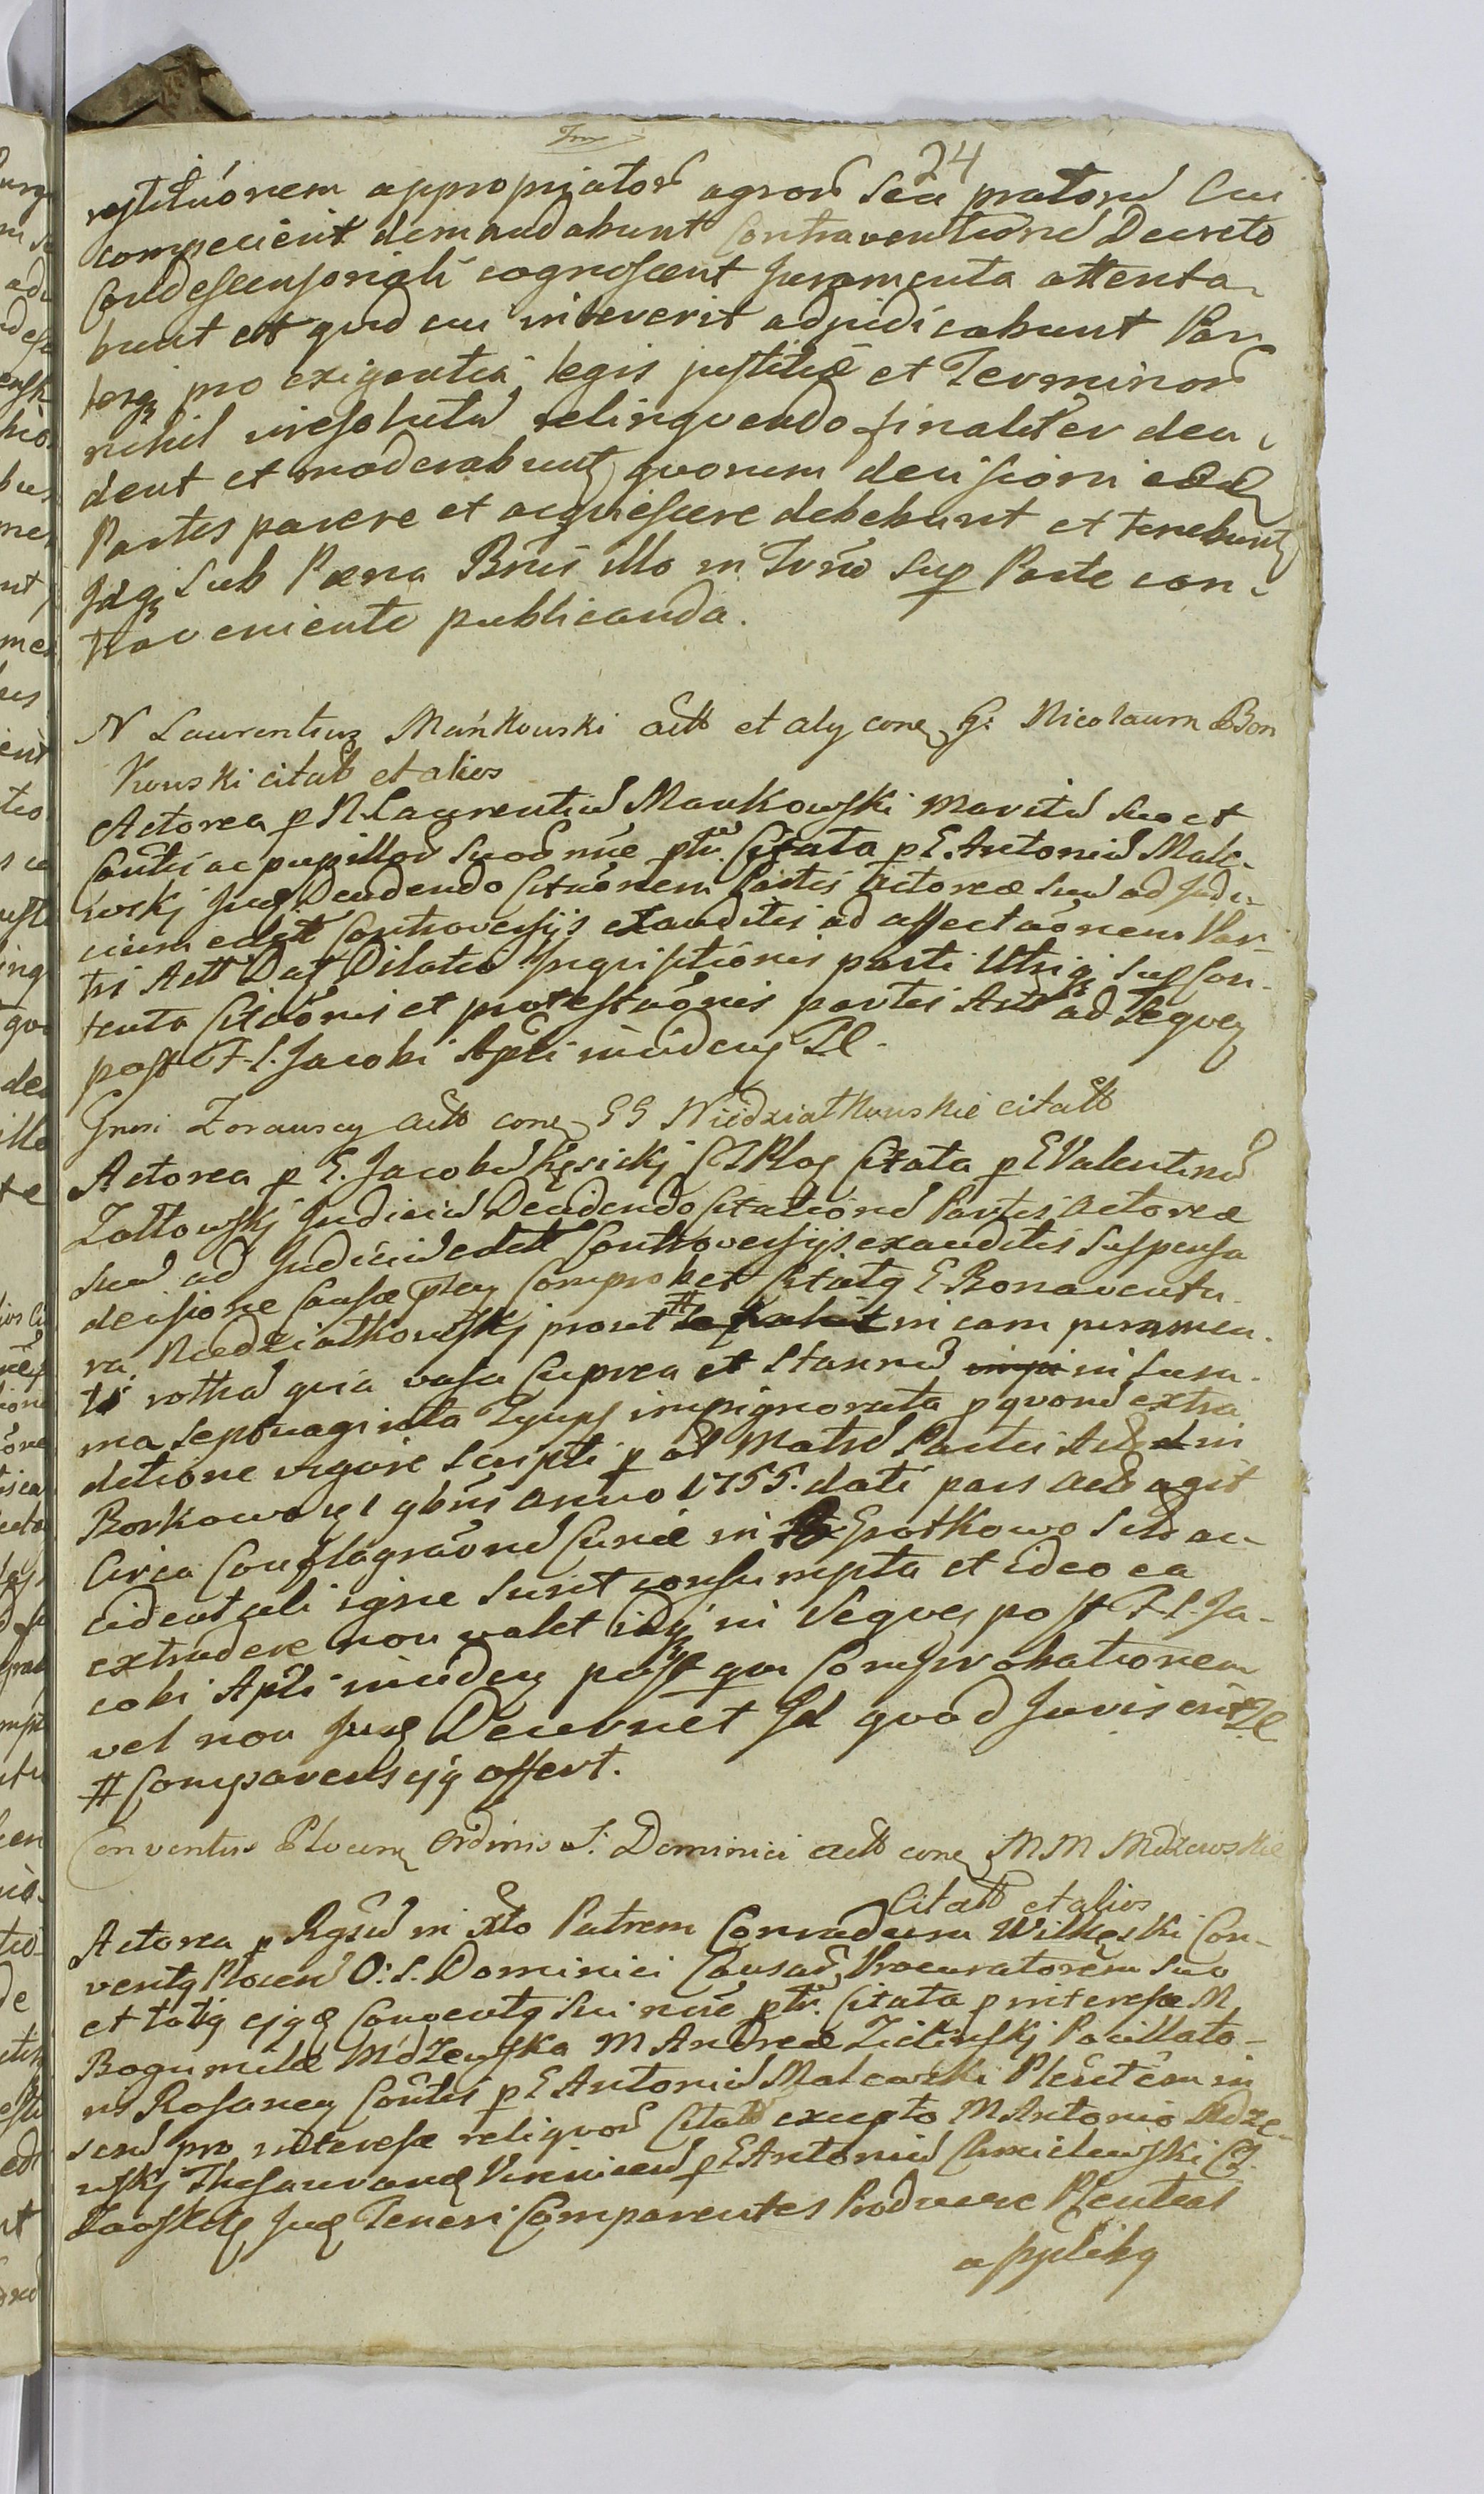 24
restituónem appropriatorũ agrorũ seu pratorũ Cui
competierit demandabunt Contraventionẽ Decreto
Condescensoriali cognoscent Juramenta attenta-
bunt et quid cui intererit adjudicabunt Par-
tesq; pro exigentia legis justitiæ et Terminorũ
nihil irresolutũ relinquendo finaliter deci-
dent et moderabunt quorum decisioni eæd
Partes parere et acquiescere debebunt et tenebunt
Idq; sub Pœna Bnis illo in Trno sup Parte con-
traveniente publicanda.
N Laurentius Mańkowski actt et alij conẹ G: Nicolaum Bon
kowski citatt et alios
Actorea p N. Laurentiũ Mankowski Maritũ suo et
Conthi ac pupillorũ suorũ nie pltr. Citata p E. Antoniũ Male-
wskj Jud Decidendo Citaónem Partis Actoreæ suũ ad Judi-
cium edit Controversijs exauditis ad affectaónem Par-
tis Actt Dat Dilatio Inquisitiónis parti Utriq; sup Con-
tenta Citaónis et protestaónis partis Actt ad Seqven
post F. S. Jacobi Apli incideń Tl.
Gnosi Zorawscy actt conẹ GG Niedziałkowskie citatt
Actorea p E. Jacobũ Kęsickj CTPlog Citata p E Valentinũ
Zołtowskj Judiciũ Decidendo Citationẽ Partis Actoreæ
suũ ad Judiciũ edit Controversijs exauditis suspensa
decisione Causæ Pleń Comprobet Citatq E. Bonaventu-
ra Niedziałkowskj prout # in eam juramen-
ti rothã quia vasa Cuprea et Stannẽ in Sum-
ma septuaginta Tynph impignorata p quorũ extra
ditione vigore Scripti p ol Matrẽ Partis Actt in
Borkowo 1 9bris Anno 1755. dati pars actt agit
Circa Conflagraónẽ Curiæ in Srotkowo sitt ac
cident sibi igne sunt consumpta et ideo ea
extradere non valet idq; in Seqveń post F. S. Ja-
cobi Apli incideń post quam Comprobationem
vel non Jud Decernet Id quod Juris erit Tl
# Comparens ejq offert.
Conventus Plocenẹ Ordinis S: Dominici actt conẹ MM Mdzewskie
Citatt et alios
Actorea p Rgsũ in Xto Patrem Conradum Wilkęski Con-
ventq Plocenẽ O: S. Dominici Causarũ Procuratorem suo
et totiq ejqd Conventq sui nie pltr. Citata p interesse M
Bogumilæ Mdzewska M Andreæ Zielinskj Pocillato-
ris Rosanen Conthis p E Antoniũ Malewski Plenitem in
senũ pro interesse reliquorũ Citatt excepto M Antonio Mdze-
wskj Thesaurand Vennicen p E Antoniũ Chmielewski CT
Zawskr Jud Teneri Comparentes Producere Plenitens
a publiq